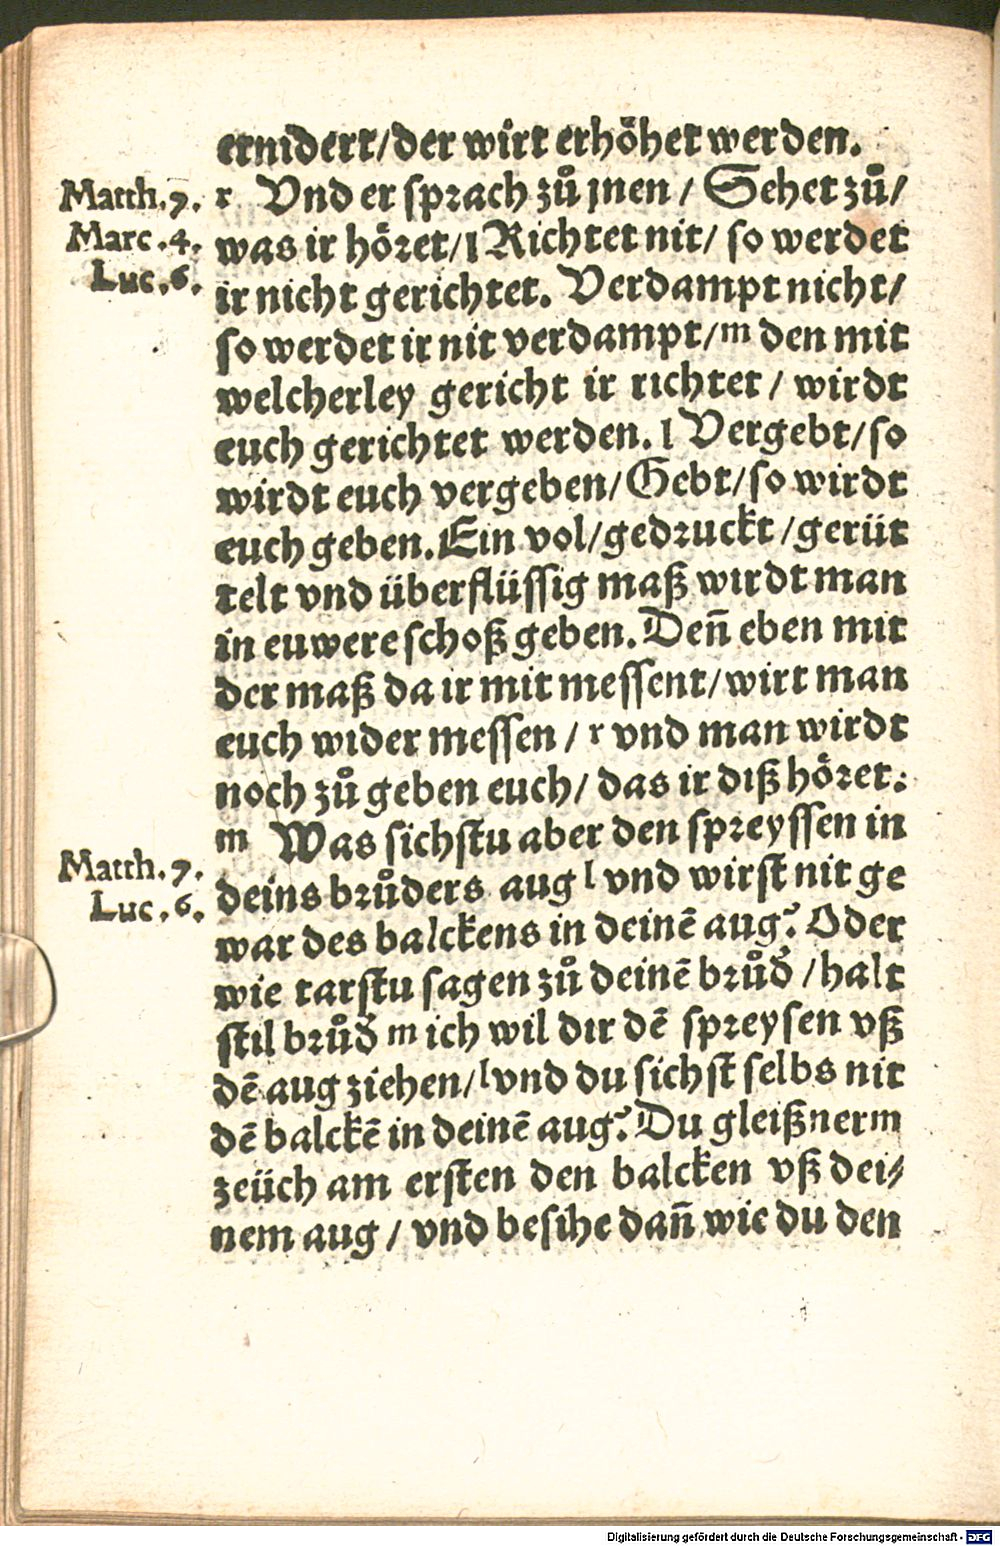 ernidert/der wirt erhöhet werden.
Matth.7. r Vnd er sprach zů jnen / Sehet zů/
Marc.4. was ir höret/l Richtet nit/ so werdet
Luc.6. ir nicht gerichtet. Verdampt nicht/
so werdet ir nit verdampt/m den mit
welcherley gericht ir richtet / wirdt
euch gerichtet werden. l Vergebt/so
wirdt euch vergeben/Gebt/so wirdt
euch geben. Ein vol/gedruckt /gerüt
telt vnd überflüssig maß wirdt man
in euwere schoß geben. Den̄ eben mit
der maß da ir mit messent/wirt man
euch wider messen / r vnd man wirdt
noch zů geben euch/ das ir diß höret.
m Was sichstu aber den spreyssen in
Matth.7. deins brůders aug l vnd wirst nit ge
Luc.6. war des balckens in deinē aug? Oder
wie tarstu sagen zů deinē brůd̕ /halt
stil brůd̕ m ich wil dir dē spreysen vß
dē aug ziehen/l vnd du sichst selbs nit
dē balckē in deinē aug? Du gleißner m
zeüch am ersten den balcken vß dei/
nem aug / vnd besihe dan̄ wie du den
Digitalisierung gefördert durch die Deutsche Forschungsgemeinschaft - DFG